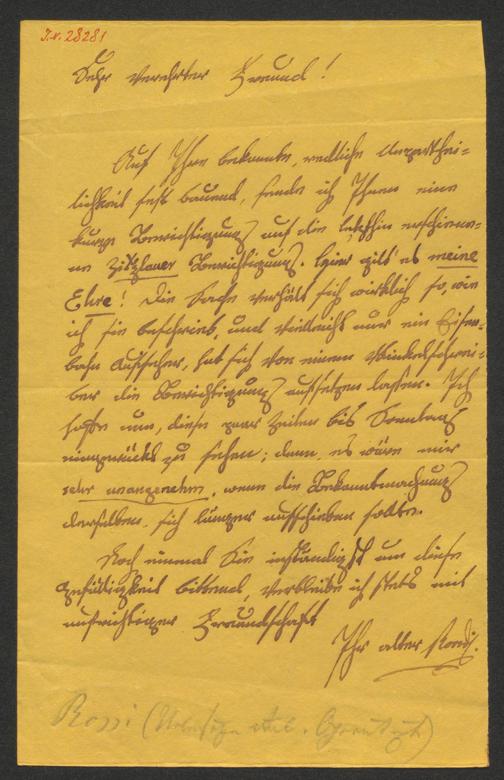 J.N. 28281
Sehr verehrter Freund!
Auf Ihre bekannte, redliche Unparthei-
lichkeit fest bauend, sende ich Ihnen eine
kurze Berichtigung auf die letzthin erschiene-
ne Berichtigung. Hier gilt es meine
Ehre! Die Sache verhält sich wirklich so, wie
ich sie beschrieb, und vielleicht nur ein Eisen-
bahn Aufseher, hat sich von einem Winkelschrei-
ber die Berichtigung aufsetzen lassen. Ich
hoffe nun, diese paar Zeilen bis Sonntag
eingerückt zu sehen; denn es wäre mir
sehr unangenehm, wenn die Bekanntmachung
derselben sich länger aufschieben sollte.
Noch einmal Sie inständigst um diese
Gefälligkeit bittend, verbleibe ich stets mit
aufrichtiger Freundschaft
Ihr alter Rossi.
Rossi (